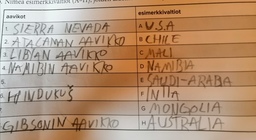 Nimeä esimerkkivaltiot
aavikot
esimerkkivaltiot
1 SIERRA NEVADA
A U.S.A
2 ATACAMAN AAVIKKO
B CHILE
3 LIBIAN AAVIKKO
C MALI
4 NAMIBIN AAVIKKO
D NAMIBIA
5.
E SAUDI-ARABIA
6. HINDUKUŠ
F
G MONGOLIA
GIBSONIN AAVIKKO
H AUSTRALIA